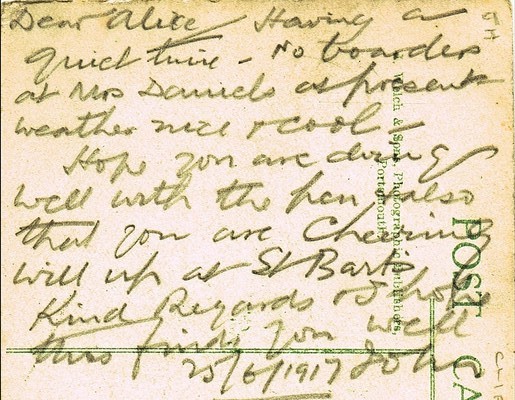 Dear Alice Having a
quiet time - No boarders
at Mrs Daniels at present
weather nice & cool -
Hope you are doing
well with the pen, also
that you are Cheering
Will up at St Barts
Kind Regards & hope
this finds you well
25/6/1917 John
Welch & Sons, Photographic Publishers,
Portsmouth.
POST CA